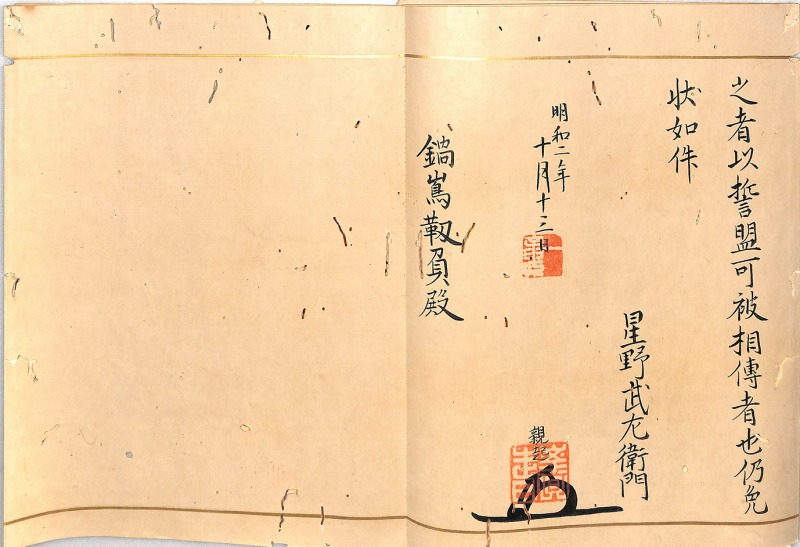 之者以誓盟可被相傳者也仍免
状如件
星野武左衛門
親起
明和二年
十月十三日
鍋嶌靱負殿